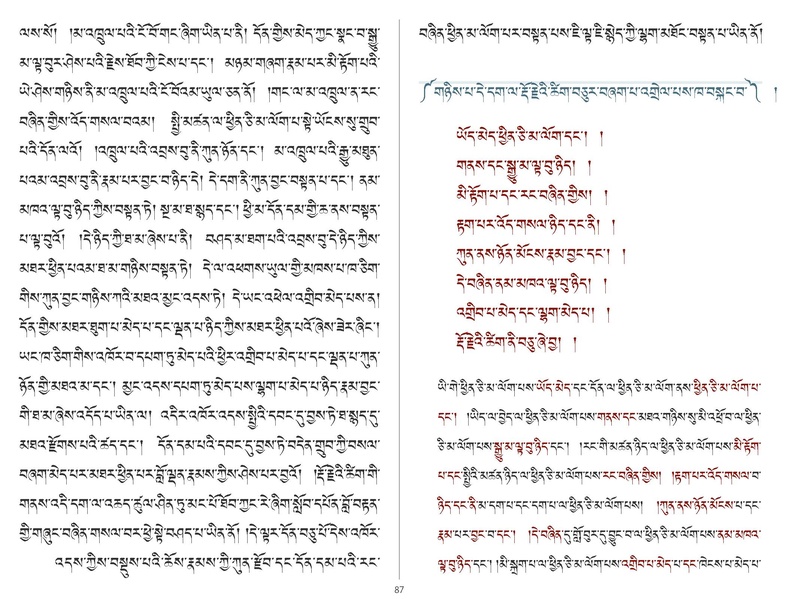 ལས་སོ། །མ་འཁྲུལ་པའི་ངོ་བོ་གང་ཞིག་ཡིན་པ་ནི། དོན་གྱིས་མེད་ཀྱང་སྣང་བ་སྒྱུ་
མ་ལྟ་བུར་ཤེས་པའི་རྗེས་ཐོབ་ཀྱི་ངེས་པ་དང་། མཉམ་གཞག་རྣམ་པར་མི་རྟོག་པའི་
ཡེ་ཤེས་གཉིས་ནི་མ་འཁྲུལ་པའི་ངོ་བོའམ་ཡུལ་ཅན་ནོ། །གང་ལ་མ་འཁྲུལ་ན་རང་
བཞིན་གྱིས་འོད་གསལ་བའམ། སྤྱི་མཚན་ལ་ཕྱིན་ཅི་མ་ལོག་པ་སྟེ་ཡོངས་སུ་གྲུབ་
པའི་དོན་ལའོ། །འཁྲུལ་པའི་འབྲས་བུ་ནི་ཀུན་ཉོན་དང་། མ་འཁྲུལ་པའི་རྒྱུ་མཐུན་
པའམ་འབྲས་བུ་ནི་རྣམ་པར་བྱང་བ་ཉིད་དེ། དེ་དག་ནི་ཀུན་བྱང་བསྟན་པ་དང་། ནམ་
མཁའ་ལྟ་བུ་ཉིད་ཀྱིས་བསྟན་ཏེ། སྔ་མ་ཐ་སྙད་དང་། ཕྱི་མ་དོན་དམ་གྱི་ཆ་ནས་བསྟན་
པ་ལྟ་བུའོ། །དེ་ཉིད་ཀྱི་ཐ་མ་ཞེས་པ་ནི། བཤད་མ་ཐག་པའི་འབྲས་བུ་དེ་ཉིད་ཀྱིས་
མཐར་ཕྱིན་པའམ་ཐ་མ་གཉིས་བསྟན་ཏེ། དེ་ལ་འཕགས་ཡུལ་གྱི་མཁས་པ་ཁ་ཅིག་
གིས་ཀུན་བྱང་གཉིས་ཀའི་མཐའ་མྱང་འདས་ཏེ། དེ་ཡང་འཕེལ་འགྲིབ་མེད་པས་ན།
དོན་གྱིས་མཐར་ཐུག་པ་མེད་པ་དང་ལྡན་པ་ཉིད་ཀྱིས་མཐར་ཕྱིན་པའོ་ཞེས་ཟེར་ཞིང་།
ཡང་ཁ་ཅིག་གིས་འཁོར་བ་དཔག་ཏུ་མེད་པའི་ཕྱིར་འགྲིབ་པ་མེད་པ་དང་ལྡན་པ་ཀུན་
ཉོན་གྱི་མཐའ་མ་དང་། མྱང་འདས་དཔག་ཏུ་མེད་པས་ལྷག་པ་མེད་པ་ཉིད་རྣམ་བྱང་
གི་ཐ་མ་ཞེས་འདོད་པ་ཡིན་ལ། འདིར་འཁོར་འདས་སྤྱིའི་དབང་དུ་བྱས་ཏེ་ཐ་སྙད་དུ་
མཐའ་རྫོགས་པའི་ཚད་དང་། དོན་དམ་པའི་དབང་དུ་བྱས་ཏེ་བདེན་གྲུབ་ཀྱི་བསལ་
བཞག་མེད་པར་མཐར་ཕྱིན་པར་བློ་ལྡན་རྣམས་ཀྱིས་ཤེས་པར་བྱའོ། །རྡོ་རྗེའི་ཚིག་གི་
གནས་འདི་དག་ལ་འཆད་ཚུལ་ཤིན་ཏུ་མང་པོ་ཐོབ་ཀྱང་རེ་ཞིག་སློབ་དཔོན་བློ་བརྟན་
གྱི་གཞུང་བཞིན་གསལ་བར་ཕྱེ་སྟེ་བཤད་པ་ཡིན་ནོ། །དེ་ལྟར་དོན་བཅུ་པོ་དེས་འཁོར་
འདས་ཀྱིས་བསྡུས་པའི་ཆོས་རྣམས་ཀྱི་ཀུན་རྫོབ་དང་དོན་དམ་པའི་རང་
བཞིན་ཕྱིན་མ་ལོག་པར་བསྟན་པས་ཇི་ལྟ་ཇི་སྙེད་ཀྱི་ལྷག་མཐོང་བསྟན་པ་ཡིན་ནོ།
༼གཉིས་པ་དེ་དག་ལ་རྡོ་རྗེའི་ཚིག་བཅུར་བཞག་པ་འགྲེལ་པས་ཁ་བསྐང་བ་༽ །
ཡོད་མེད་ཕྱིན་ཅི་མ་ལོག་དང་། །
གནས་དང་སྒྱུ་མ་ལྟ་བུ་ཉིད། །
མི་རྟོག་པ་དང་རང་བཞིན་གྱིས། །
རྟག་པར་འོད་གསལ་ཉིད་དང་ནི། །
ཀུན་ནས་ཉོན་མོངས་རྣམ་བྱང་དང་། །
དེ་བཞིན་ནམ་མཁའ་ལྟ་བུ་ཉིད། །
འགྲིབ་པ་མེད་དང་ལྷག་མེད་པ། །
རྡོ་རྗེའི་ཚིག་ནི་བཅུ་ཞེ་བྱ། །
ཡི་གེ་ཕྱིན་ཅི་མ་ལོག་པས་ཡོད་མེད་དང་དོན་ལ་ཕྱིན་ཅི་མ་ལོག་ནས་ཕྱིན་ཅི་མ་ལོག་པ་
དང་། །ཡིད་ལ་བྱེད་ལ་ཕྱིན་ཅི་མ་ལོག་པས་གནས་དང་མཐའ་གཉིས་སུ་མི་འཕྲོ་བ་ལ་ཕྱིན་
ཅི་མ་ལོག་པས་སྒྱུ་མ་ལྟ་བུ་ཉིད་དང་། །རང་གི་མཚན་ཉིད་ལ་ཕྱིན་ཅི་མ་ལོག་པས་མི་རྟོག་
པ་དང་སྤྱིའི་མཚན་ཉིད་ལ་ཕྱིན་ཅི་མ་ལོག་པས་རང་བཞིན་གྱིས། །རྟག་པར་འོད་གསལ་བ་
ཉིད་དང་ནི་མ་དག་པ་དང་དག་པ་ལ་ཕྱིན་ཅི་མ་ལོག་པས། །ཀུན་ནས་ཉོན་མོངས་པ་དང་
རྣམ་པར་བྱང་བ་དང་། །དེ་བཞིན་དུ་གློ་བུར་དུ་བྱུང་བ་ལ་ཕྱིན་ཅི་མ་ལོག་པས་ནམ་མཁའ་
ལྟ་བུ་ཉིད་དང་། །མི་སྐྲག་པ་ལ་ཕྱིན་ཅི་མ་ལོག་པས་འགྲིབ་པ་མེད་པ་དང་ཁེངས་པ་མེད་པ་
87